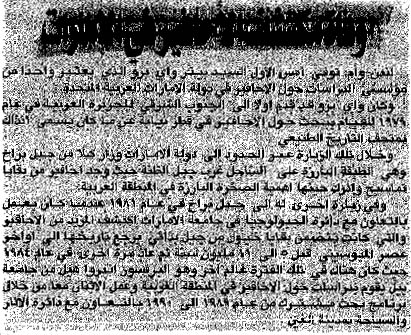 لندن - وام توفي امس الاول السيد بيتر واي برو الذي يعتبر واحدا من
مؤسسي الدراسات حول الاحافير في دولة الامارات العربية المتحدة.
وكان واي برو قد قدم اولا الى الجنوب الشرقي للجزيرة العربية في عام
١٩٧٩ للقيام ببحث حول الاحافير في قطر نيابة عن ما كان يسمى آنذاك
بمتحف التاريخ الطبيعي
وخلال تلك الزيارة عبر الحدود الى دولة الامارات وزار كلا من جبل براح
وهي المنطقة البارزة على الساحل غرب جبل الظنة حيث وجد احافير من بقايا
تماسيح وادرك حينها اهمية الصخرة البارزة في المنطقة الغربية.
وفي زيارة اخرى له الى جبل براح في عام ١٩٨١ عندما كان يعمل
بالتعاون مع دائرة الجيولوجيا في جامعة الامارات اكتشف المزيد من الاحافير
والتي كانت تتضمن بقايا خيول من جبل بدائي يرجع تاريخها الى اواخر
عصر الميوسيني قبل ٥ الى ١١ مليون سنة ثم عاد مرة اخرى في عام ١٩٨٤
حيث كان هناك في تلك الفترة عالم آخر وهو البروفسور اندرو هيل من جامعة
ييل يقوم بدراسات حول الاحافير في المنطقة الغربية وعمل الاثنان معا من خلال
برنامج بحث مشترك من عام ١٩٨٩ الى ١٩٩٠ بالتعاون مع دائرة الآثار
والسياحة بمدينة العين